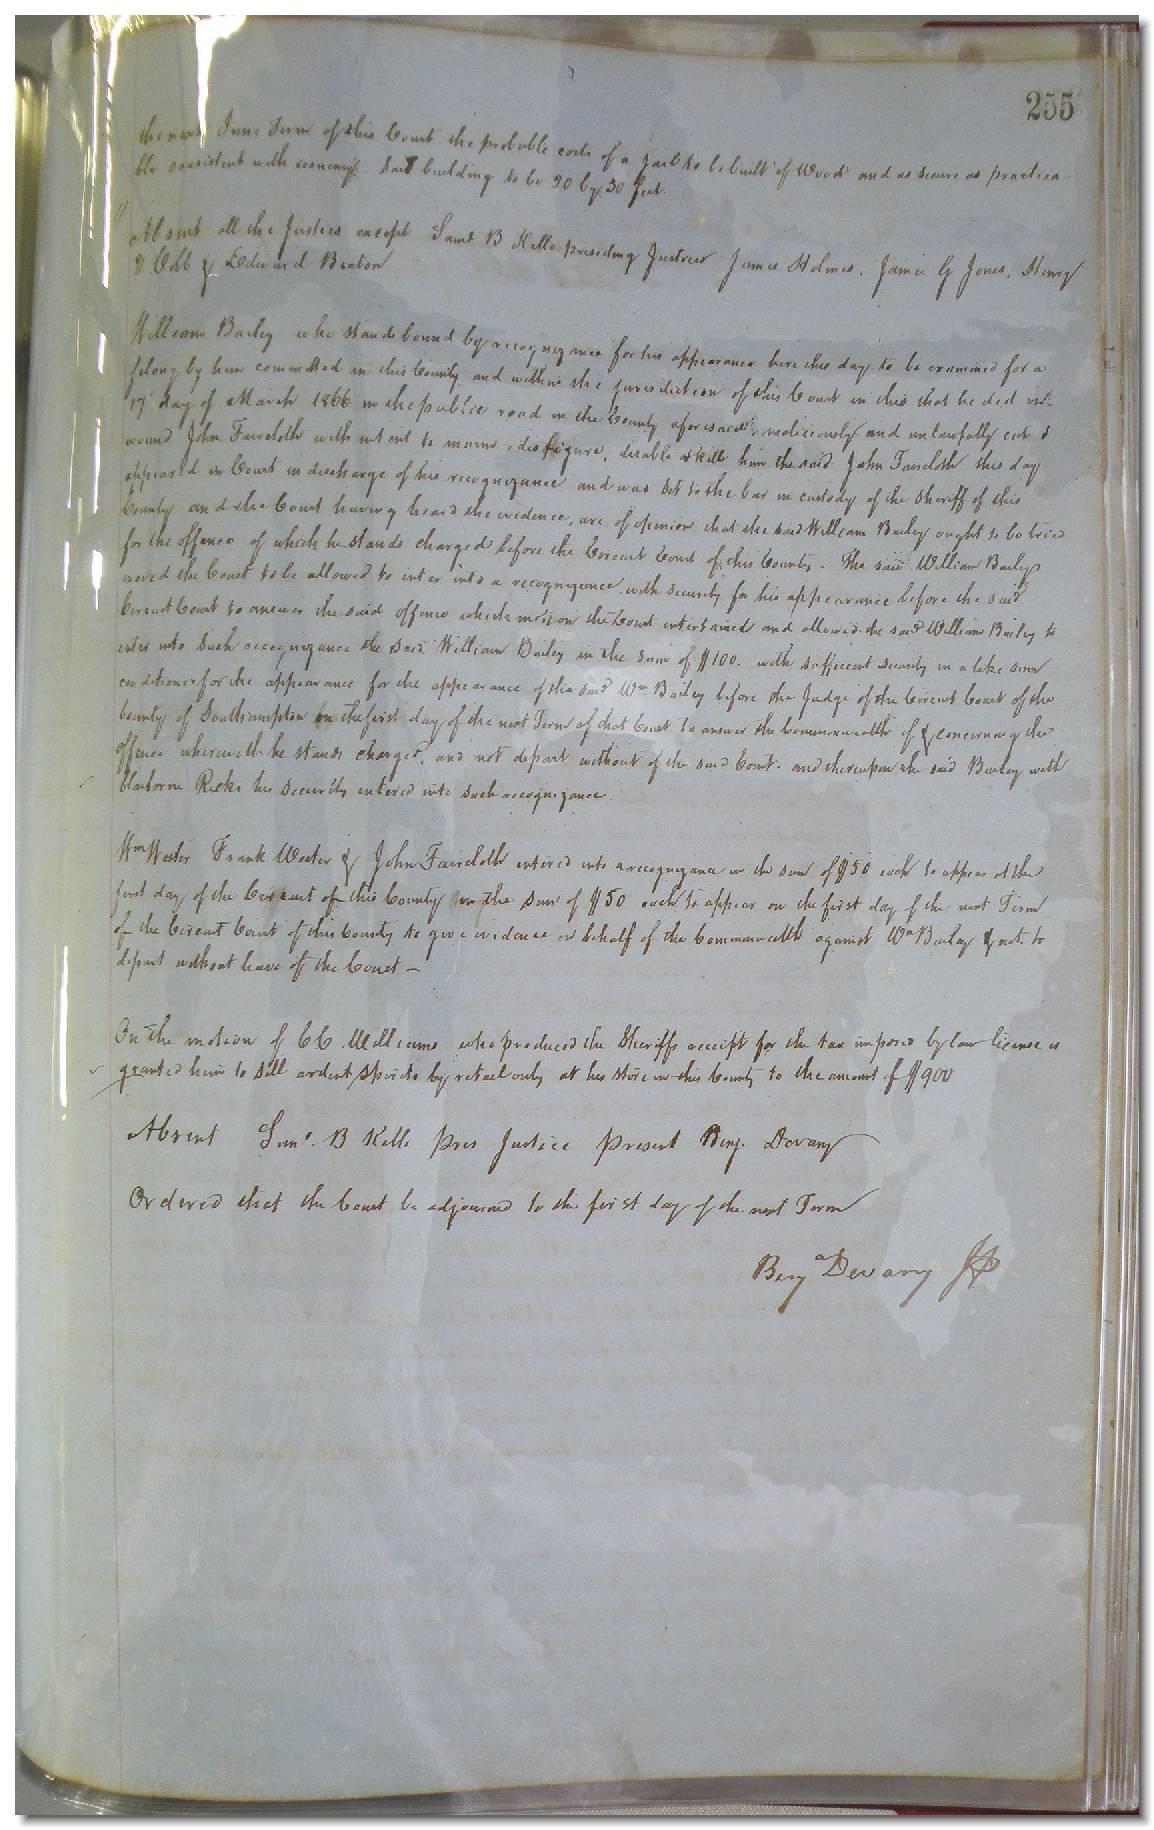 255
the next June Term of this Court the probable costs of a jail to be built of Wood and as secure as practica-
ble consistent with economy. Said building to be 20 by 30 feet.
Absent all the Justices except Saml B Kello presiding Justice James Holmes, James G Jones, Henry
Cobb & Edward Beaton
William Bailey who stands bound by recognizance for his appearance here this day to be examined for a
felony by him committed in this County and within the jurisdiction of this Court in this that he did on
17th day of March 1866 in the public road in the County aforesaid, maliciously and unlawfully cut &
wound John Faircloth with intent to maim, disfigure, disable & kill him the said John Faircloth this day
appeared in Court in discharge of his recognizance and was set to the bar in custody of the Sheriff of this
County and the Court having heard the evidence, are of opinion that the said William Bailey ought to be tried
for the offence of which he stands charged before the Circuit Court of this County. The said William Bailey
moved the Court to be allowed to inter into a recognizence with security for his appearance before the said
Circuit Court to answer the said offence which motion the Court entertained and allowed the said William Bailey to
enter into such recognizance the said William Bailey in the sum of $100. with sufficient security in a like sum
conditioned for the appearance for the appearance of the said Wm Bailey before the Judge of the Circuit Court of the
County of Southampton on the first day of the next Term of that Court to answer the Commonwealth of & concerning the
offence wherewith he stands charged, and not depart without of the said Court. and thereupon the said Bailey with
Claiborne Ricks his security entered into such recognizance.
Wm Wester Frank Wester & John Faircloth entered into a recognizance in the sum of $50 each to appear at the
first day of the Circuit of this County in the sum of $50 each to appear on the first day of the next Term
of the Circuit Court of this County to give evidence on behalf of the Commonwealth against Wm Bailey & not to
depart without leave of the Court —
On the motion of CC Williams who produced the Sheriffs receipt for the tax imposed by law license is
granted him to sell ardent spirits by retail only at his store in this County to the amount of $900
Absent Saml. B Kello Pres Justice present Benj. Devany
Ordered that the Court be adjourned to the first day of the next Term
Benja Devany JP